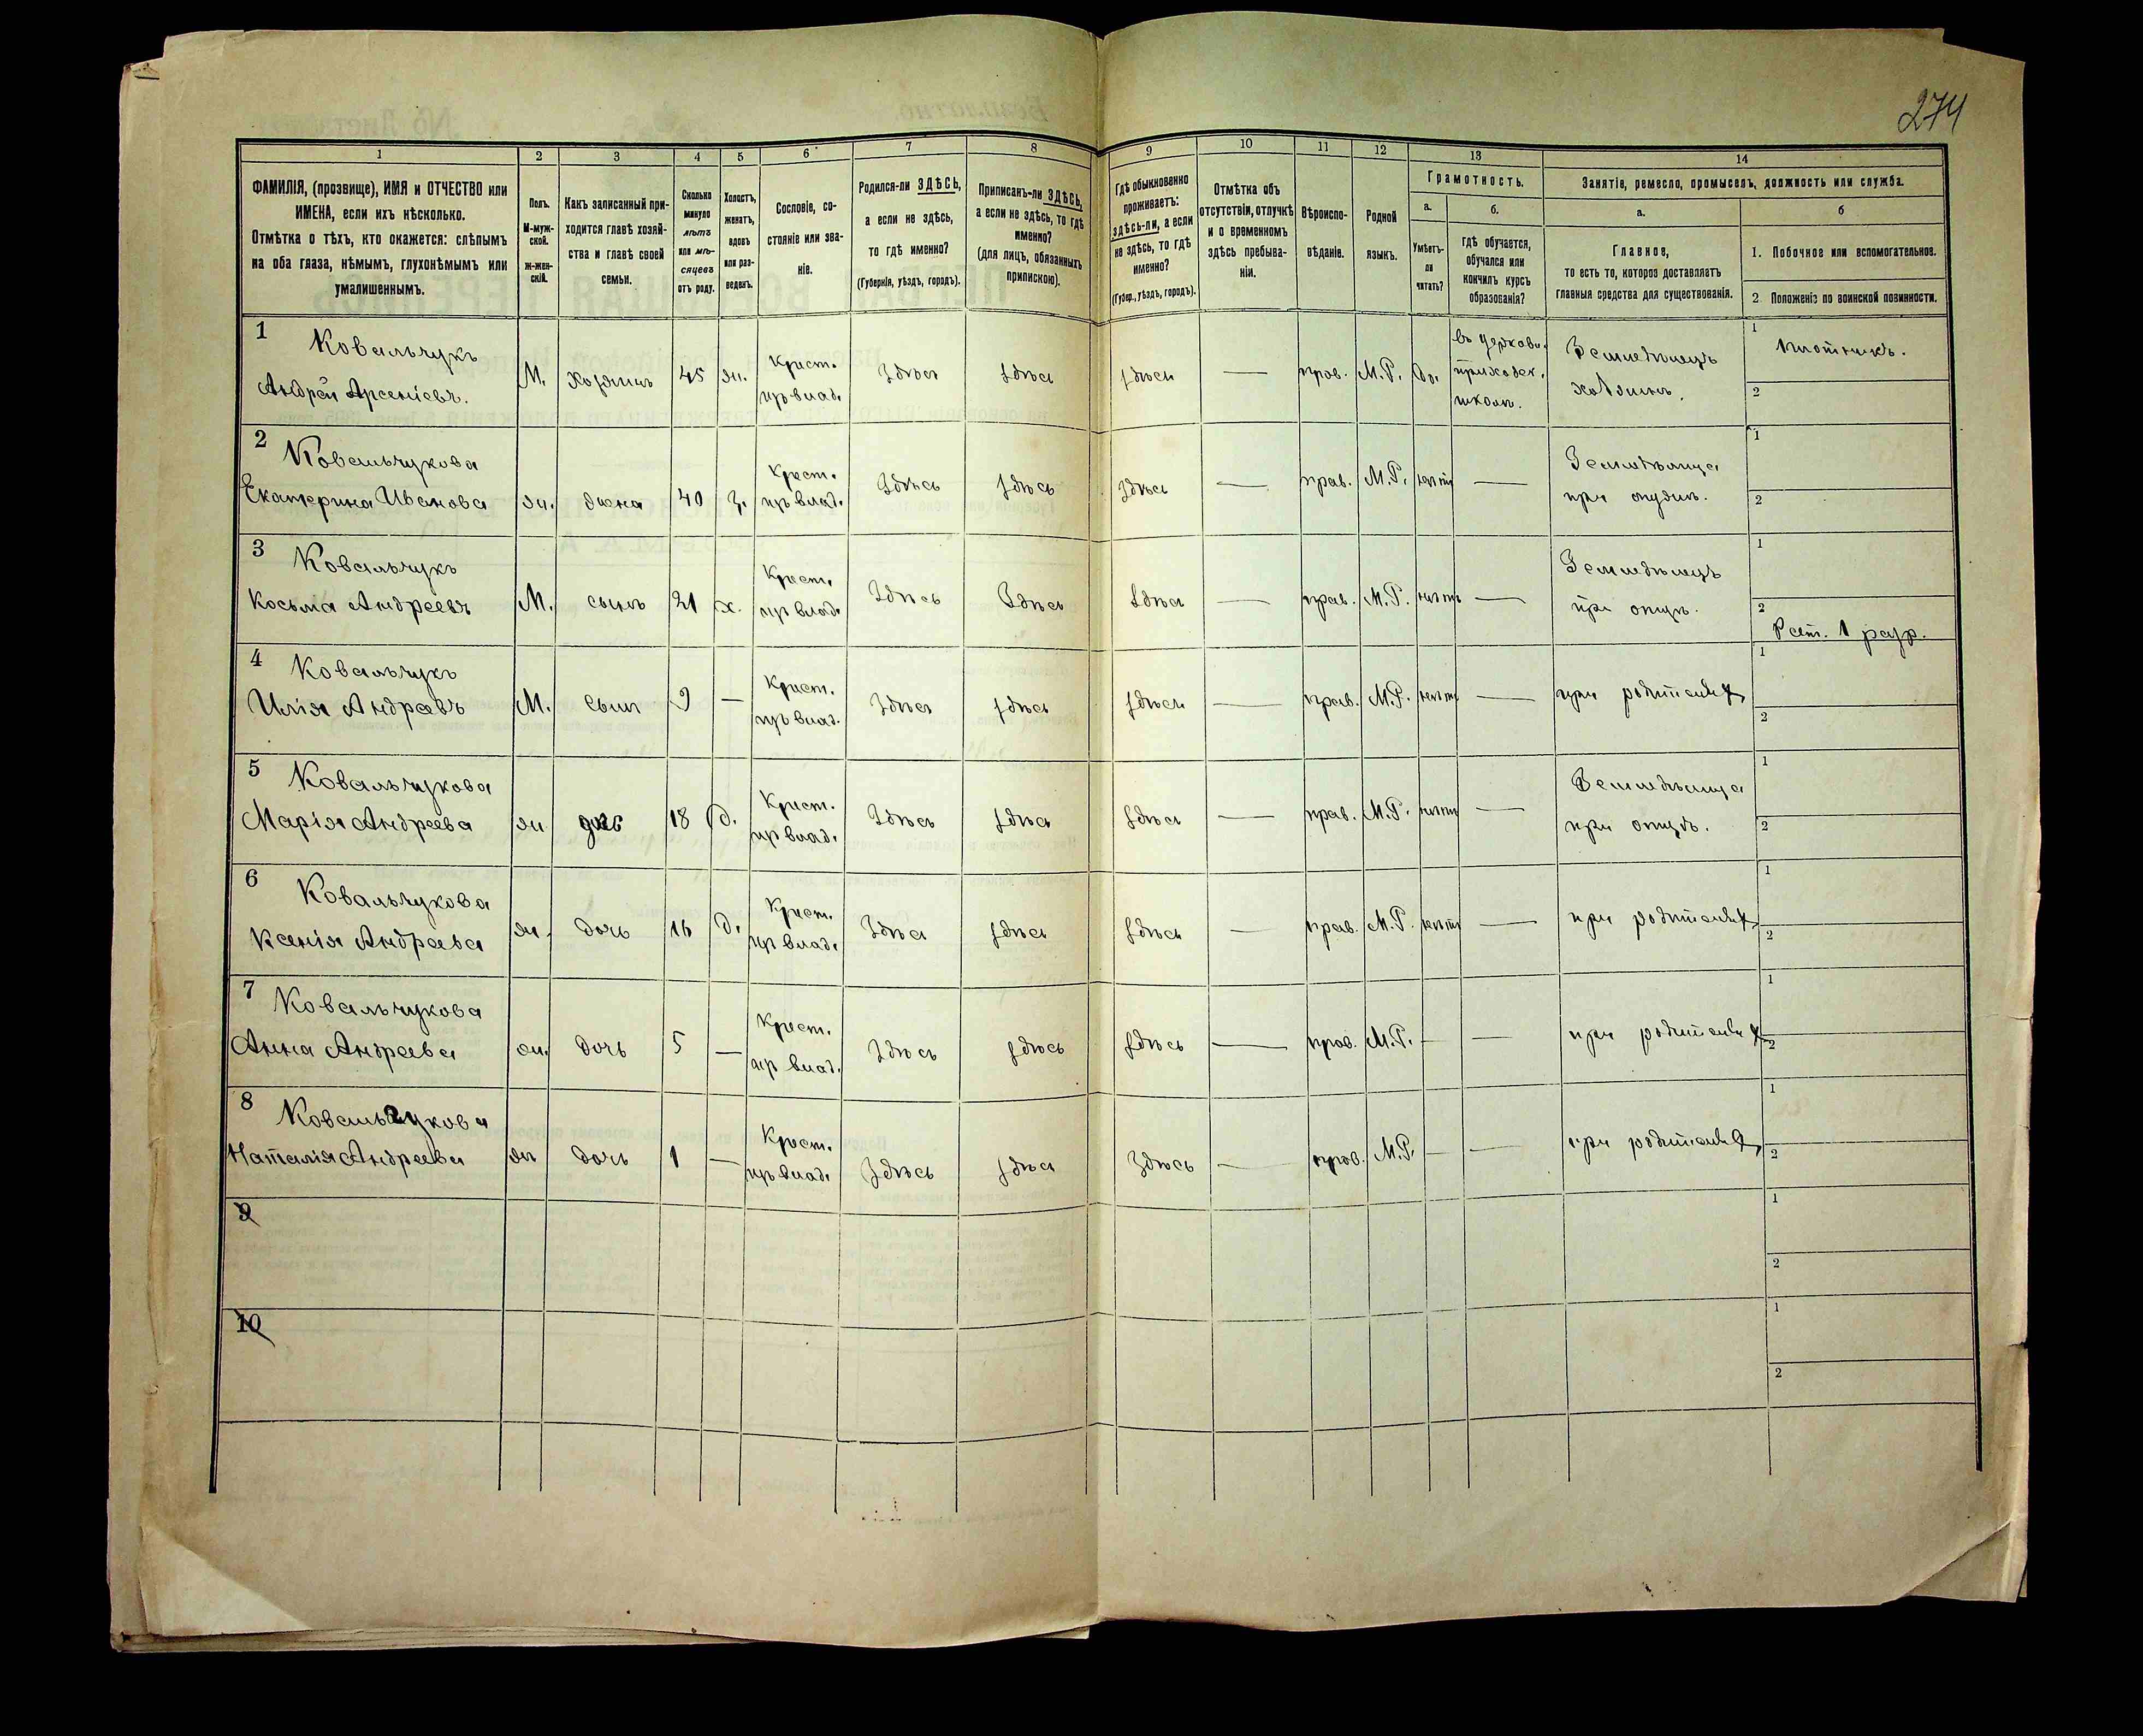 274
1 2 3 4 5 6 7 8 9 10 11 12 13 14
ФАМИЛІЯ, (прозвище), ИМЯ и ОТЧЕСТВО или
ИМЕНА, если ихъ нѣсколько.
Отмѣтка о тѣхъ, кто окажется: слѣпымъ
на оба глаза, нѣмымъ, глухонѣмымъ или
умалишеннымъ.
Полъ.
М-муж-
ской.
Ж-жен-
скій.
Какъ записанный при-
ходится главѣ хозяй-
ства и главѣ своей
семьи.
Сколько
минуло
лѣтъ
или мѣ-
сяцевъ
отъ роду.
Холостъ,
женатъ,
вдовъ
или раз-
веденъ.
Сословіе, со-
стояніе или зва-
ніе.
Родился-ли ЗДѢСЬ,
а если не здѣсь,
то гдѣ именно?
(Губернія, уѣздъ, городъ).
Приписанъ-ли ЗДѢСЬ,
а если не здѣсь, то гдѣ
именно?
(для лицъ, обязанныхъ
припискою).
Гдѣ обыкновенно
проживаетъ:
здѣсь-ли, а если
не здѣсь, то гдѣ
именно?
(Губер., уѣздъ, городъ).
Отмѣтка объ
отсутствіи, отлучкѣ
и о временномъ
здѣсь пребыва-
ніи.
Вѣроиспо-
вѣданіе.
Родной
языкъ.
Грамотность.
а.
Умѣетъ-
ли
читать?
б.
гдѣ обучается,
обучался или
кончилъ курсъ
образованія?
Занятіе, ремесло, промыселъ, должность или служба.
а.
Главное,
то есть то, которое доставляетъ
главныя средства для существованія.
б
1. Побочное или вспомогательное.
2. Положеніе по воинской повинности.
1 Ковальчукъ
Андрей Арсеніевъ.
М. хозяинъ 45 ж. Крест. изъ влад. Здѣсь здѣсь здѣсь — прав. М.Р. да.
въ церковн.
приходск.
школѣ.
Земледѣлецъ
хозяинъ.
1 плотникъ.
2
2 Ковальчукова
Екатерина Иванова
ж. жена 40 з. Крест. изъ влад. Здѣсь здѣсь здѣсь — прав. М.Р. нѣтъ —
Земледѣлица
при мужѣ.
1
2
3 Ковальчукъ
Косьма Андреевъ
М. сынъ 21 х. Крест. изъ влад. Здѣсь Здѣсь здѣсь — прав. М.Р. нѣтъ —
Земледѣлецъ
при отцѣ.
1
2 Рат. 1 разр.
4 Ковальчукъ
Илія Андреевъ
М. сынъ 9 — Крест. изъ влад. Здѣсь здѣсь здѣсь — прав. М.Р. нѣтъ — при родителяхъ
1
2
5 Ковальчукова
Марія Андреева
ж дочь 18 д. Крест. изъ влад. Здѣсь здѣсь здѣсь — прав. М.Р. нѣтъ —
Земледѣлица
при отцѣ.
1
2
6 Ковальчукова
Ксенія Андреева
ж. дочь 16 д. Крест. изъ влад. Здѣсь здѣсь здѣсь — прав. М.Р. нѣтъ — при родителяхъ
1
2
7 Ковальчукова
Анна Андреева
ж. дочь 5 — Крест. изъ влад. Здѣсь здѣсь здѣсь — прав. М.Р. — — при родителяхъ
1
2
8 Ковальчукова
Наталія Андреева
ж дочь 1 — Крест. изъ влад. Здѣсь здѣсь Здѣсь — прав. М.Р. — — при родителяхъ
1
2
9
1
2
10
1
2